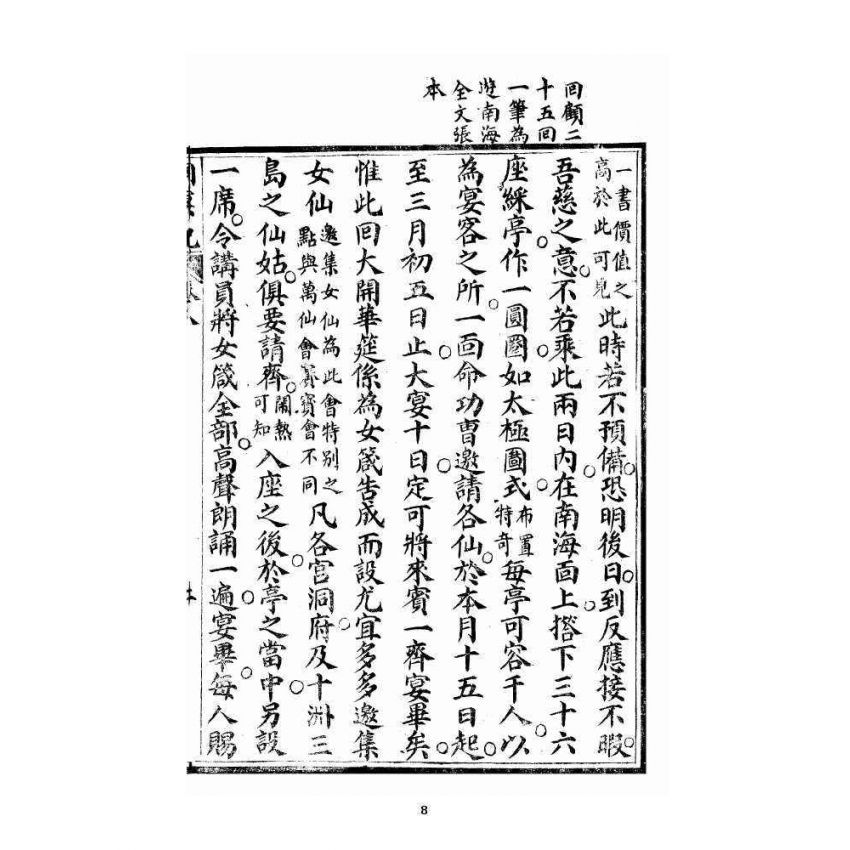 回顧二
十五回
一筆為
遊南海
全文張
本
一書價值之
高於此可見此時若不預備恐明後日到反應接不暇
吾慈之意不若乘此兩日內在南海面上撘下三十六
座綵亭作一圓圈如太極圖式布置
特奇每亭可容千人以
為宴客之所一面命功曹邀請各仙於本月十五日起
至三月初五日止大宴十日定可將來賓一齊宴畢矣
惟此回大開華筵係為女箴告成而設尤宜多多邀集
女仙邀集女仙為此會特別之
點與萬仙會賽寶會不同凡各宮洞府及十洲三
島之仙姑俱要請齊鬧熱
可知入座之後於亭之當中另設
一席令講員將女箴全部高聲朗誦一遍宴畢每人賜
8